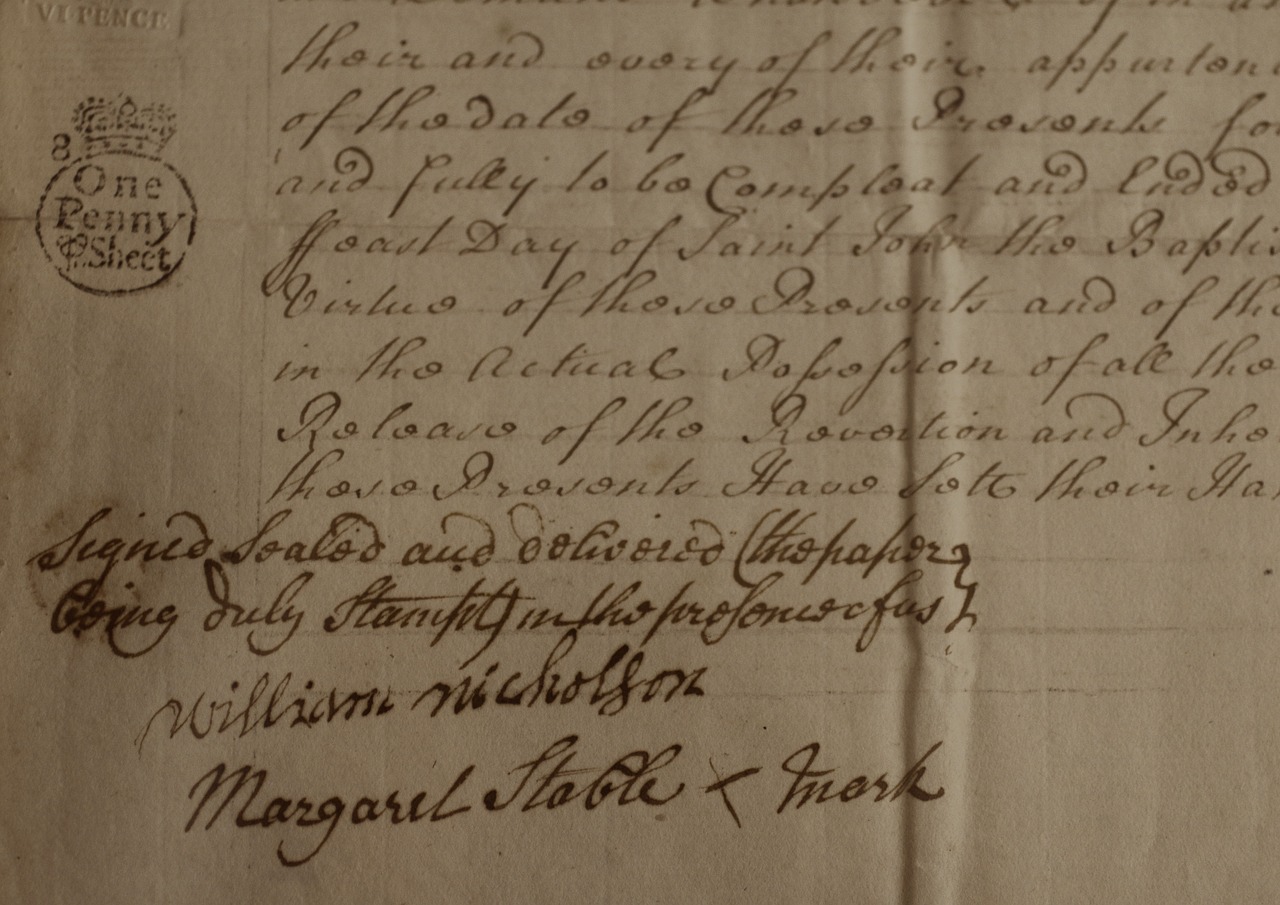 VI PENCE
8
One
Penny
P Sheet
their and every of their appurten
of the date of these Presents fo
and fully to be Compleat and Ended
ffeast Day of Saint John the Baptis
Virtue of these Presents and of the
in the Actual Possession of all the
Release of the Revertion and Inhe
these Presents Have Sett their Han
Signed Sealed and delivered (the paper
being duly Stampt) in the presence of us
William Nicholson
Margaret Stable × Mark